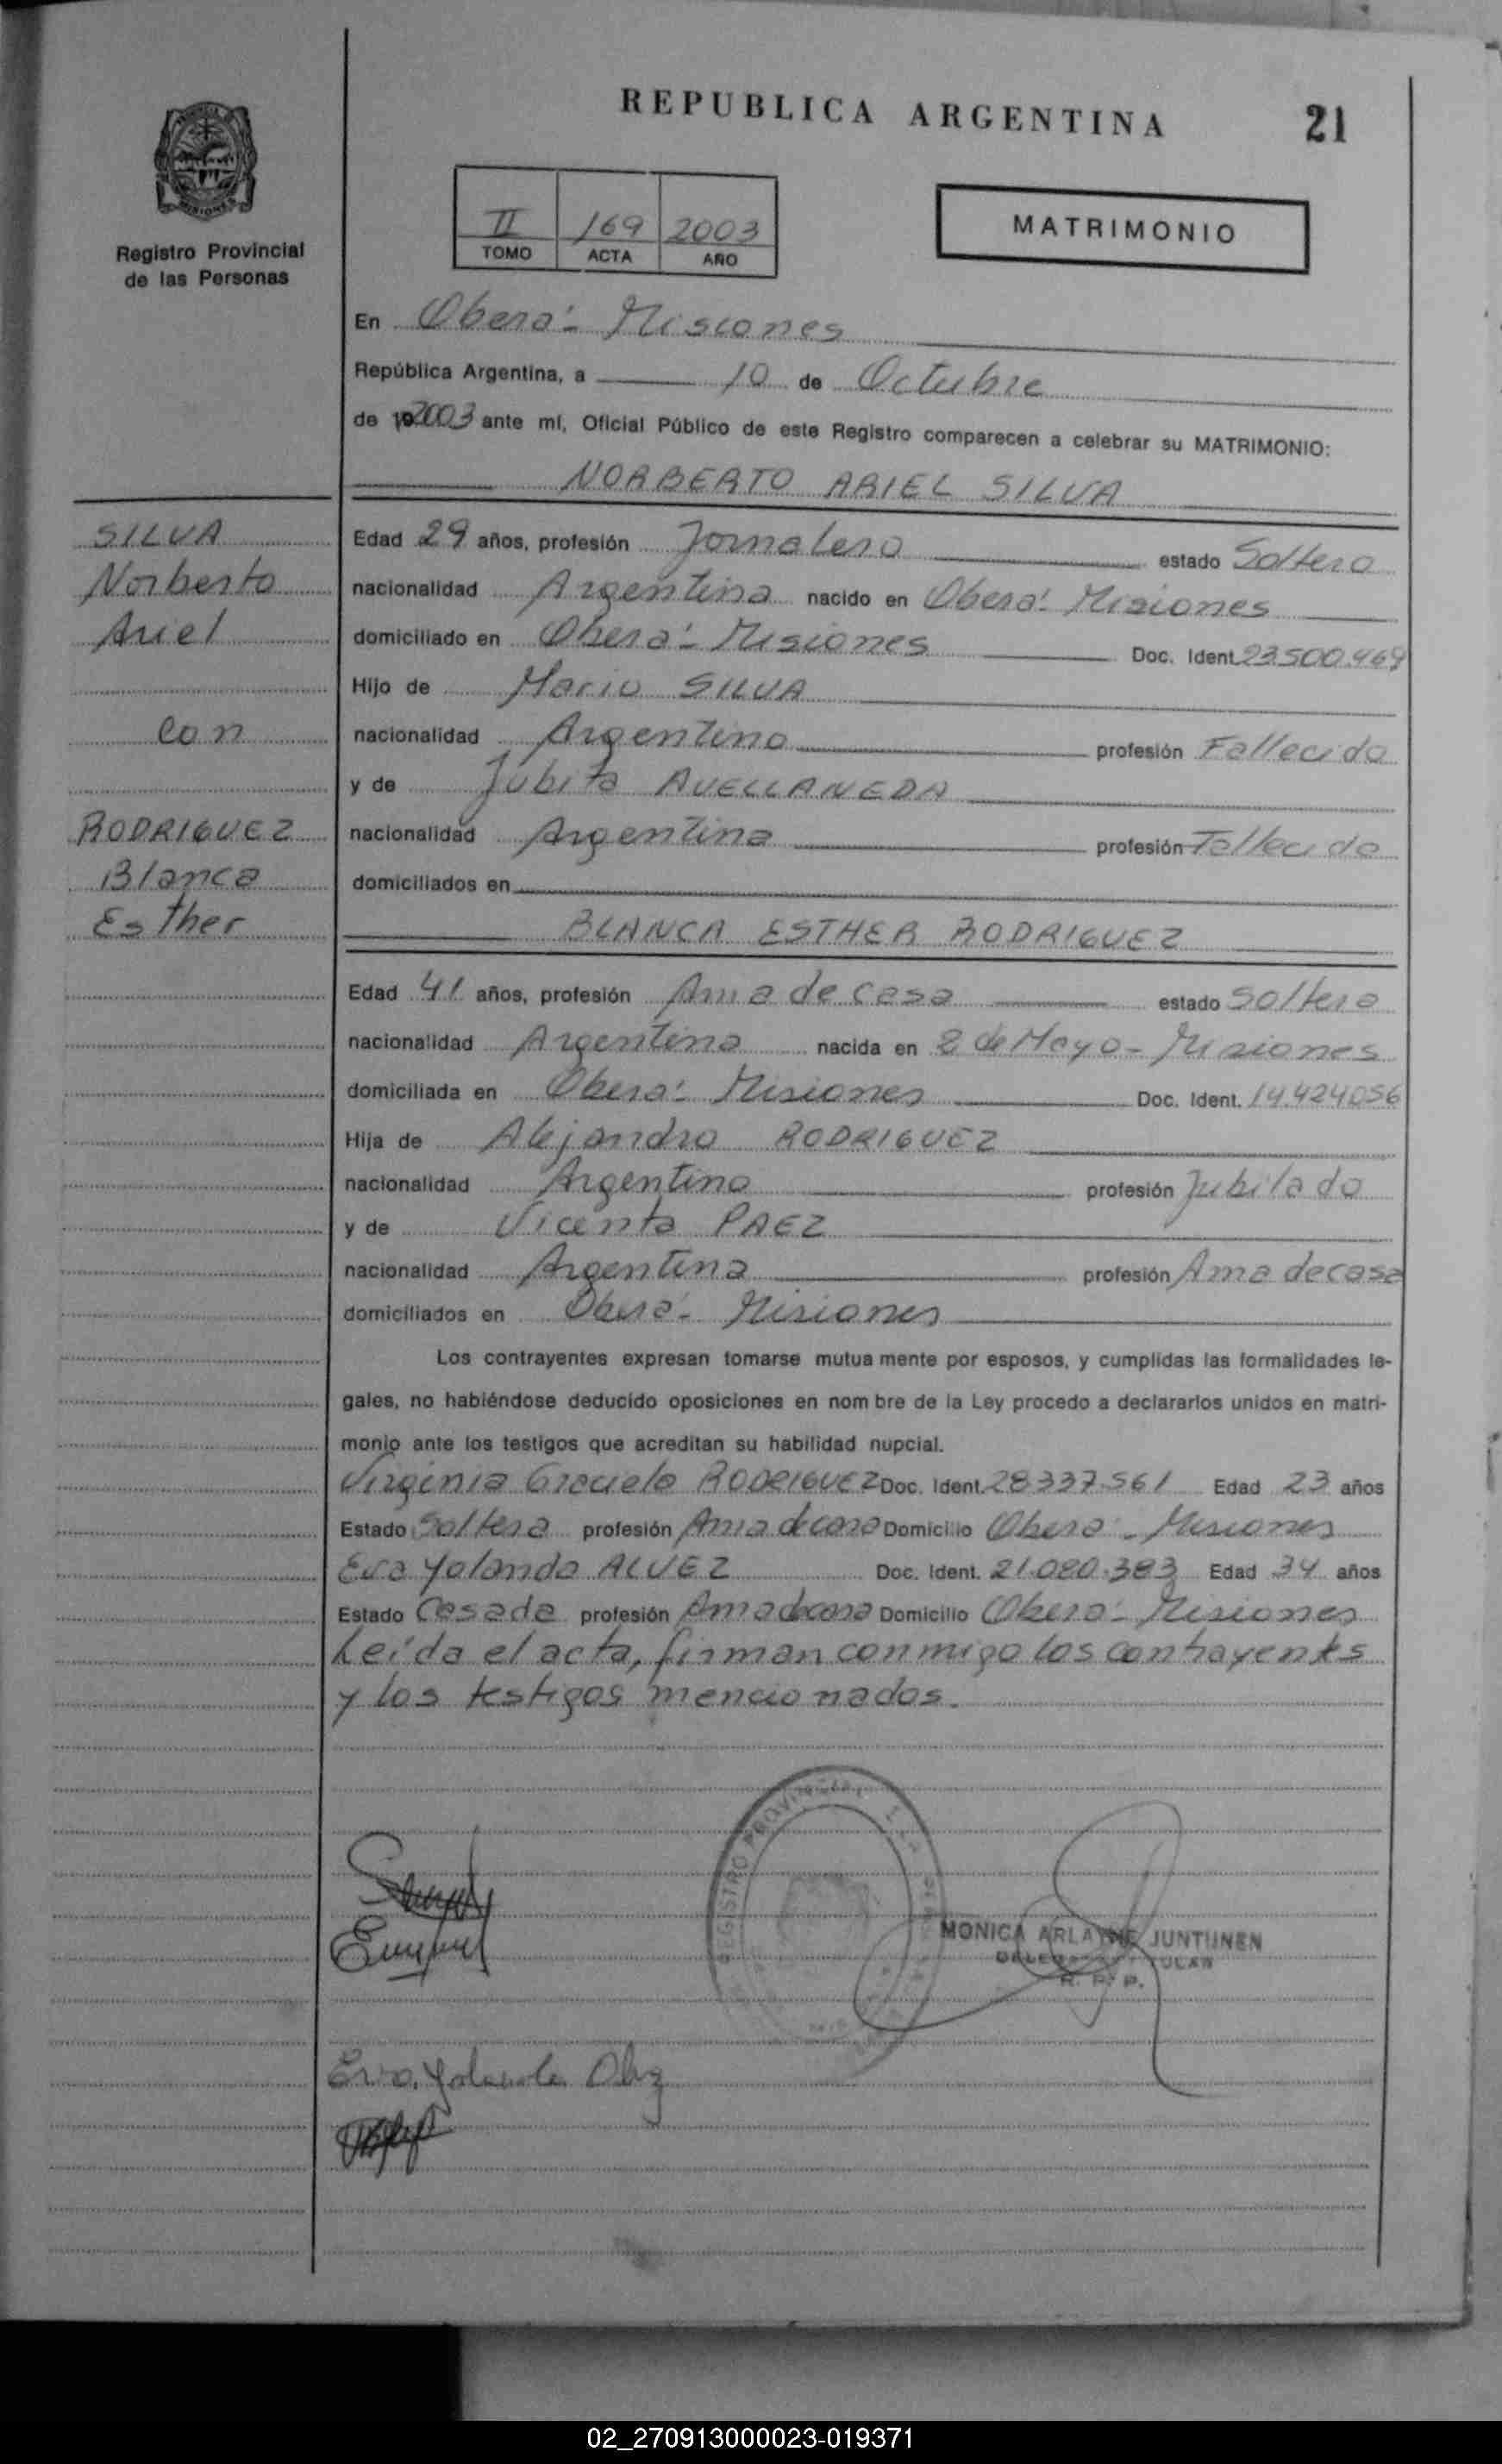 REPUBLICA ARGENTINA
21
Registro Provincial
de las Personas
II 169 2003
TOMO ACTA AÑO
MATRIMONIO
En Oberá - Misiones
República Argentina, a 10 de Octubre
de 2003 ante mí, Oficial Público de este Registro comparecen a celebrar su MATRIMONIO:
NORBERTO ARIEL SILVA
SILVA
Norberto
Ariel
con
RODRIGUEZ
Blanca
Esther
Edad 29 años, profesión Jornalero estado Soltero
nacionalidad Argentina nacido en Oberá - Misiones
domiciliado en Oberá - Misiones Doc. Ident. 23.500.469
Hijo de Mario SILVA
nacionalidad Argentino profesión Fallecido
y de Jubita AVELLANEDA
nacionalidad Argentina profesión Fallecida
domiciliados en
BLANCA ESTHER RODRIGUEZ
Edad 41 años, profesión Ama de casa estado Soltera
nacionalidad Argentina nacida en 2 de Mayo - Misiones
domiciliada en Oberá - Misiones Doc. Ident. 14.424.056
Hija de Alejandro RODRIGUEZ
nacionalidad Argentino profesión Jubilado
y de Vicenta PAEZ
nacionalidad Argentina profesión Ama de casa
domiciliados en Oberá - Misiones
Los contrayentes expresan tomarse mutua mente por esposos, y cumplidas las formalidades le-
gales, no habiéndose deducido oposiciones en nom bre de la Ley procedo a declararlos unidos en matri-
monio ante los testigos que acreditan su habilidad nupcial.
Virginia Graciela RODRIGUEZ Doc. Ident. 28.337.561 Edad 23 años
Estado Soltera profesión Ama de casa Domicilio Oberá - Misiones
Eva Yolanda ALVEZ Doc. Ident. 21.080.383 Edad 34 años
Estado Casada profesión Ama de casa Domicilio Oberá - Misiones
Leída el acta, firman conmigo los contrayentes
y los testigos mencionados.
REGISTRO PROVINCIAL
MONICA ARLAYNE JUNTUNEN
R. P. P.
Eva Yolanda
02_270913000023-019371